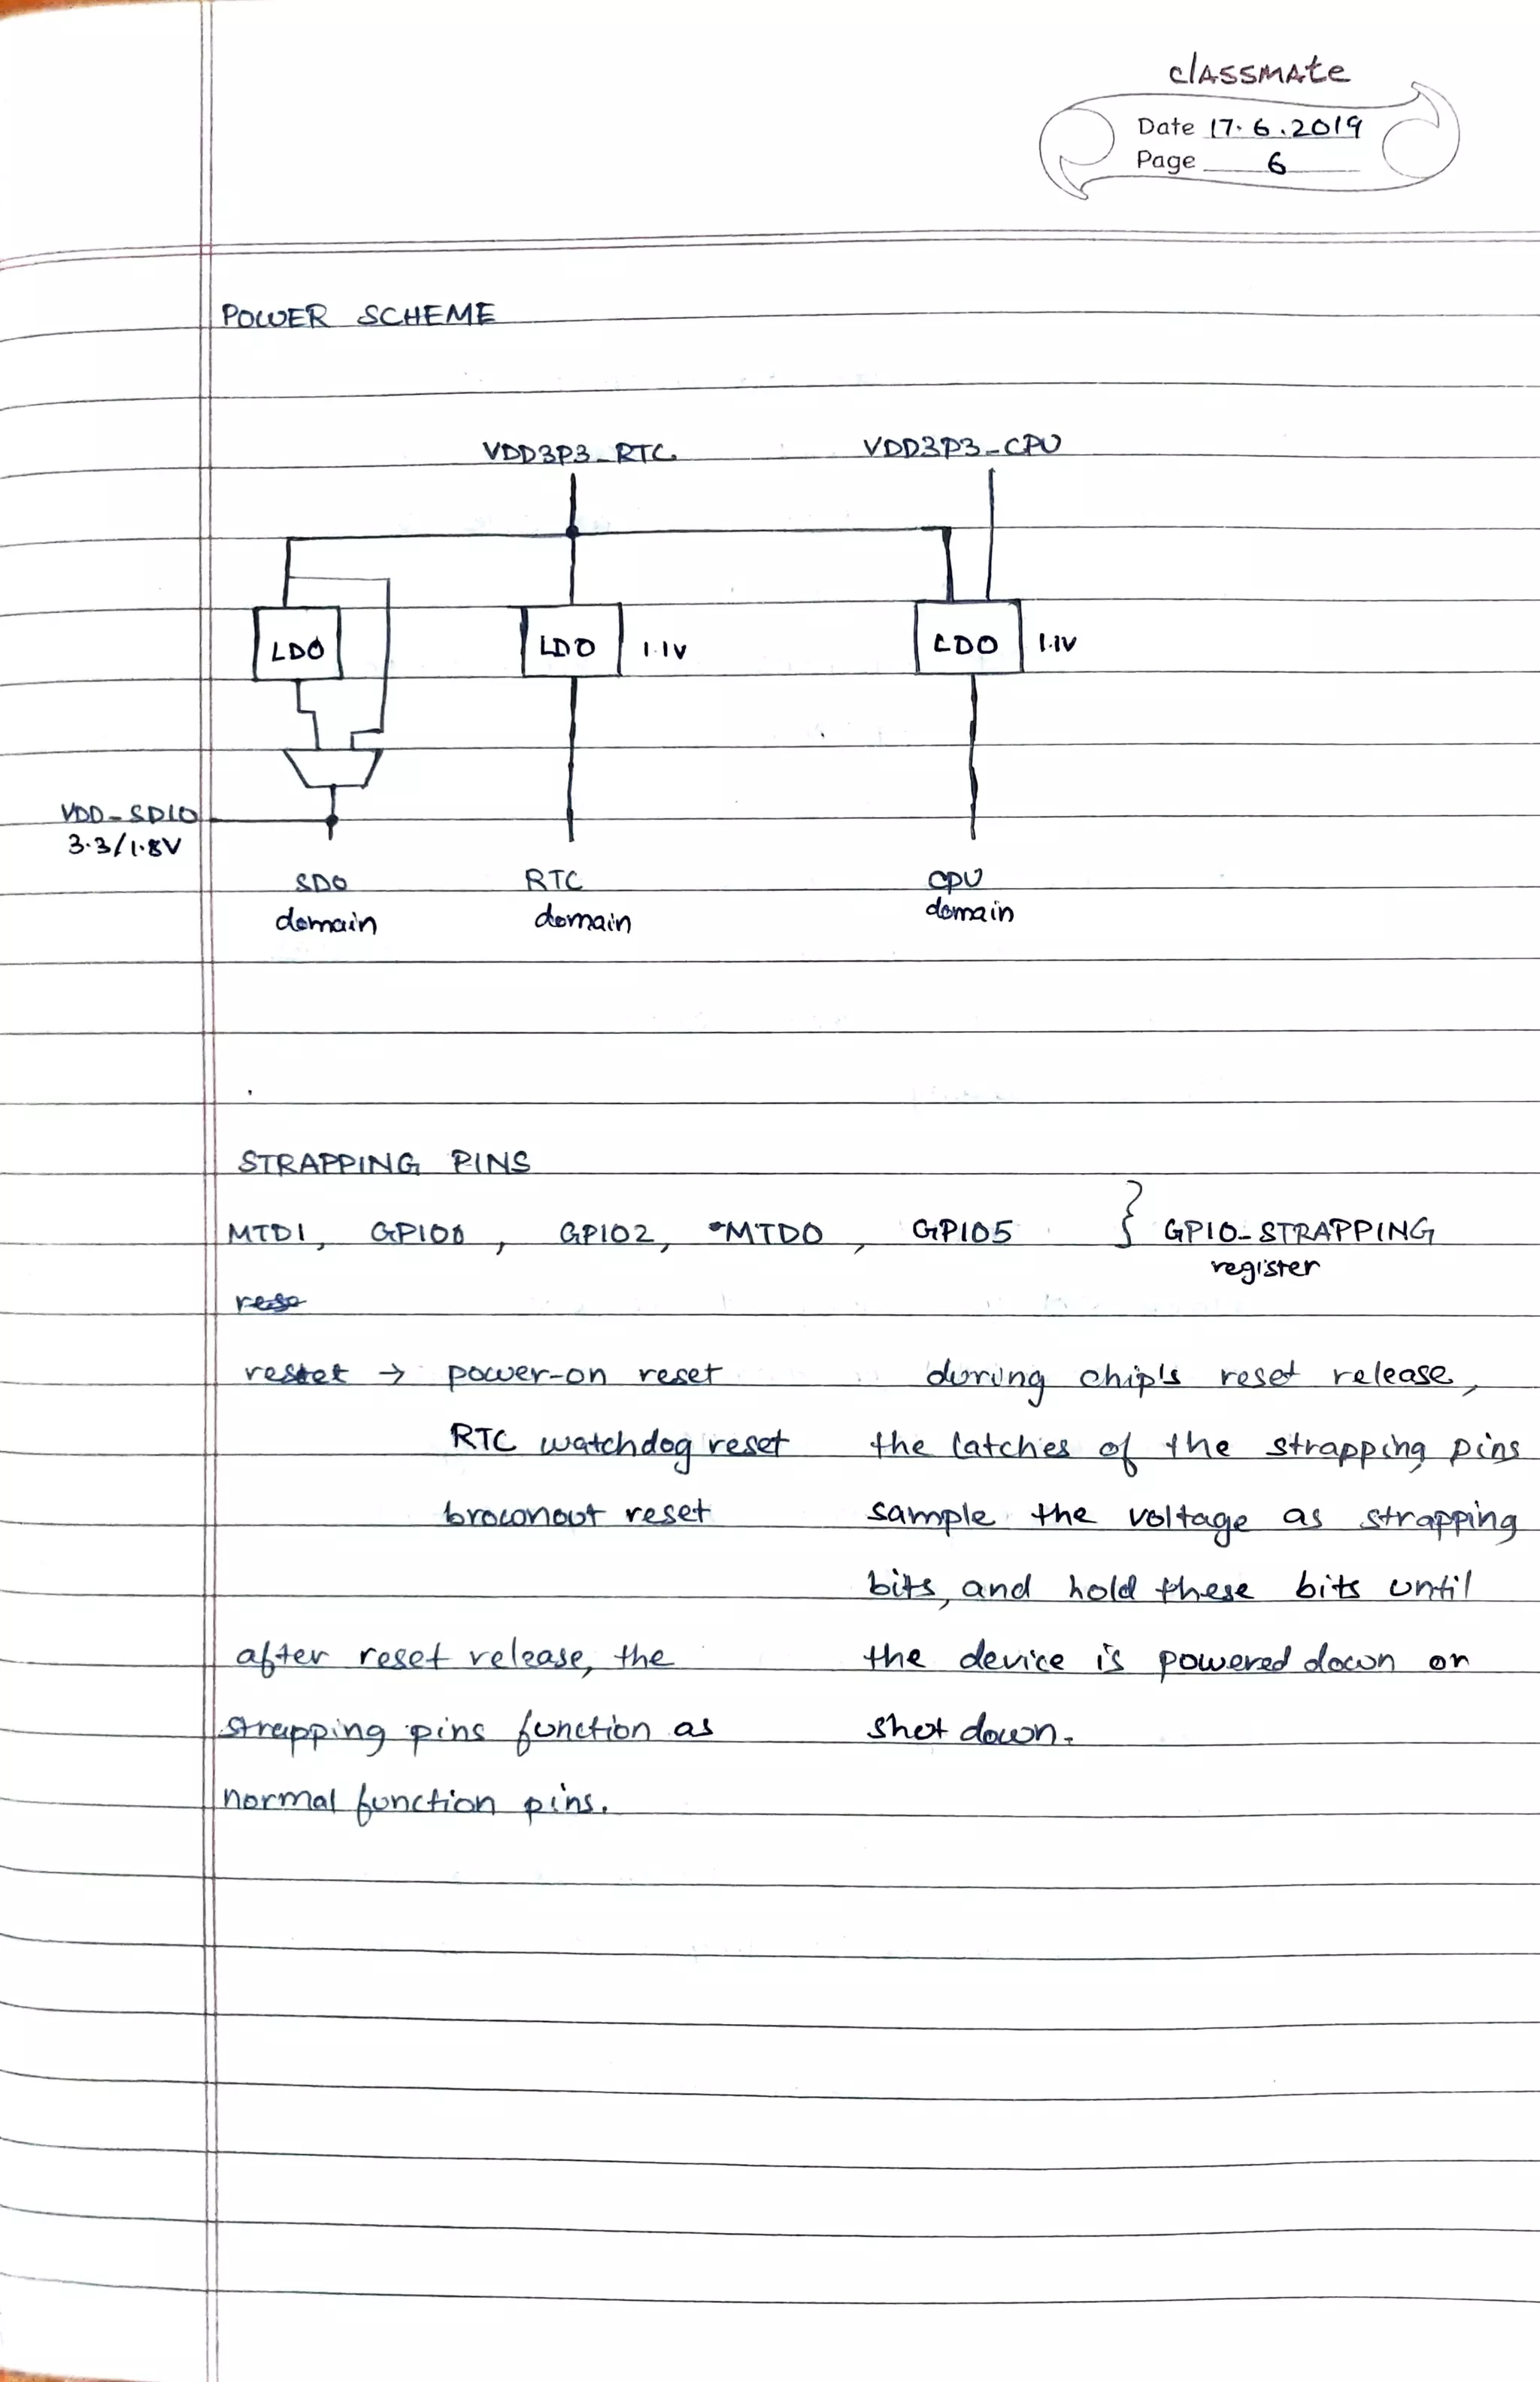 classmate
Date 17.6.2019
Page 6
POWER SCHEME
VDD3P3_RTC VDD3P3_CPU
LDO LDO 1.1V LDO 1.1V
VDD_SDIO
3.3/1.8V
SDO RTC CPU
domain domain domain
STRAPPING PINS
MTDI, GPIO0, GPIO2, MTDO, GPIO5 } GPIO_STRAPPING
register
rese
reset → power-on reset during chip's reset release,
RTC watchdog reset the latches of the strapping pins
brownout reset sample the voltage as strapping
bits, and hold these bits until
after reset release, the the device is powered down or
strapping pins function as shut down.
normal function pins.